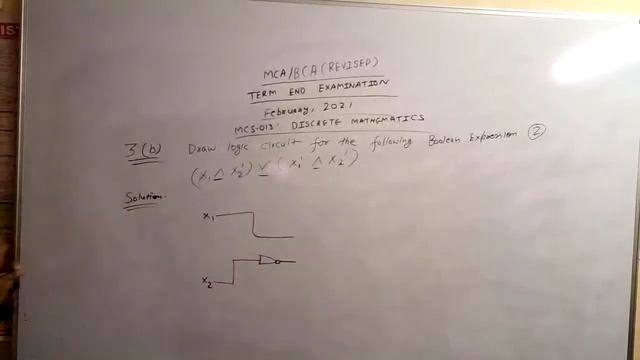 MCA/BCA (REVISED)
TERM END EXAMINATION
February, 2021
MCS-013: DISCRETE MATHEMATICS
3(b) Draw logic circuit for the following Boolean Expression (2)
(x₁ ∧ x₂') ∨ (x₁' ∧ x₂')
Solution.
x₁
x₂